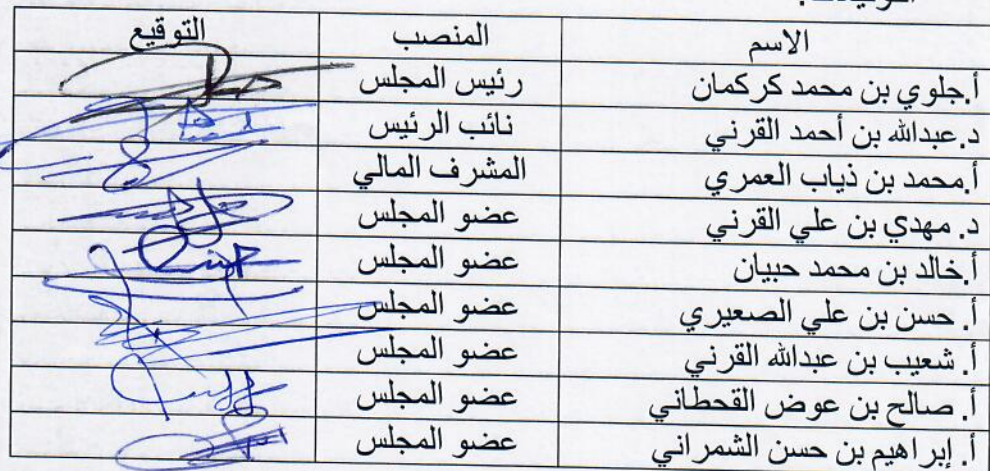 الاسم المنصب التوقيع
أ.جلوي بن محمد كركمان رئيس المجلس
د.عبدالله بن أحمد القرني نائب الرئيس
أ.محمد بن ذياب العمري المشرف المالي
د. مهدي بن علي القرني عضو المجلس
أ.خالد بن محمد حبيان عضو المجلس
أ. حسن بن علي الصعيري عضو المجلس
أ. شعيب بن عبدالله القرني عضو المجلس
أ. صالح بن عوض القحطاني عضو المجلس
أ. إبراهيم بن حسن الشمراني عضو المجلس